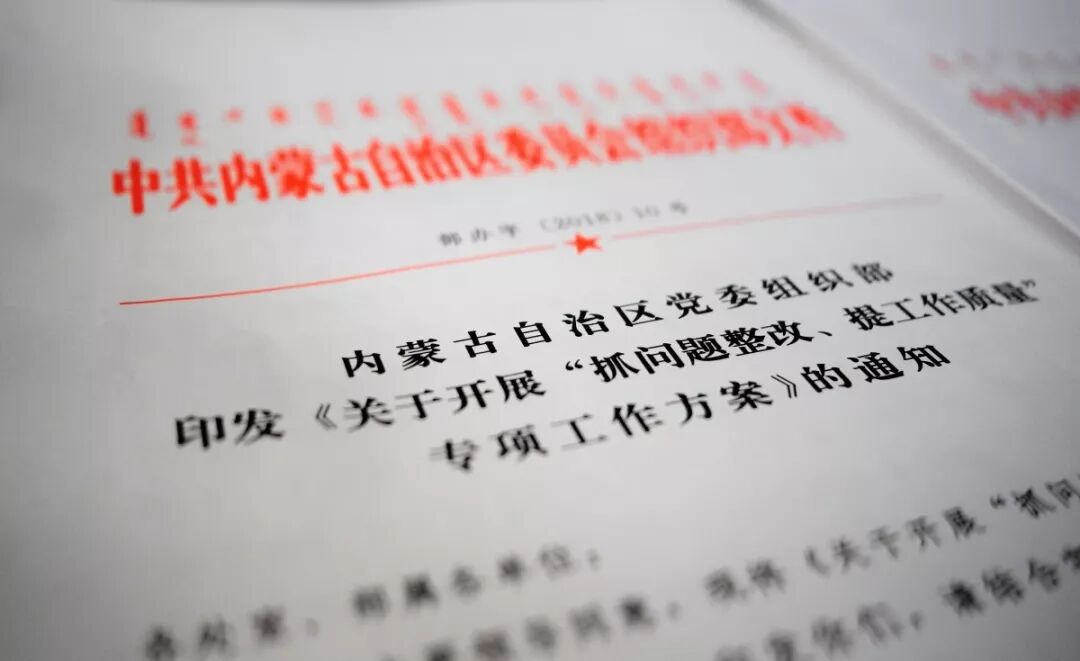 中共内蒙古自治区委员会组织部文件
部办字〔2018〕10号
内蒙古自治区党委组织部
印发《关于开展“抓问题整改、提工作质量”
专项工作方案》的通知
各处室、部属各单位：
领导同意，现将《关于开展“抓问
印发你们，请结合